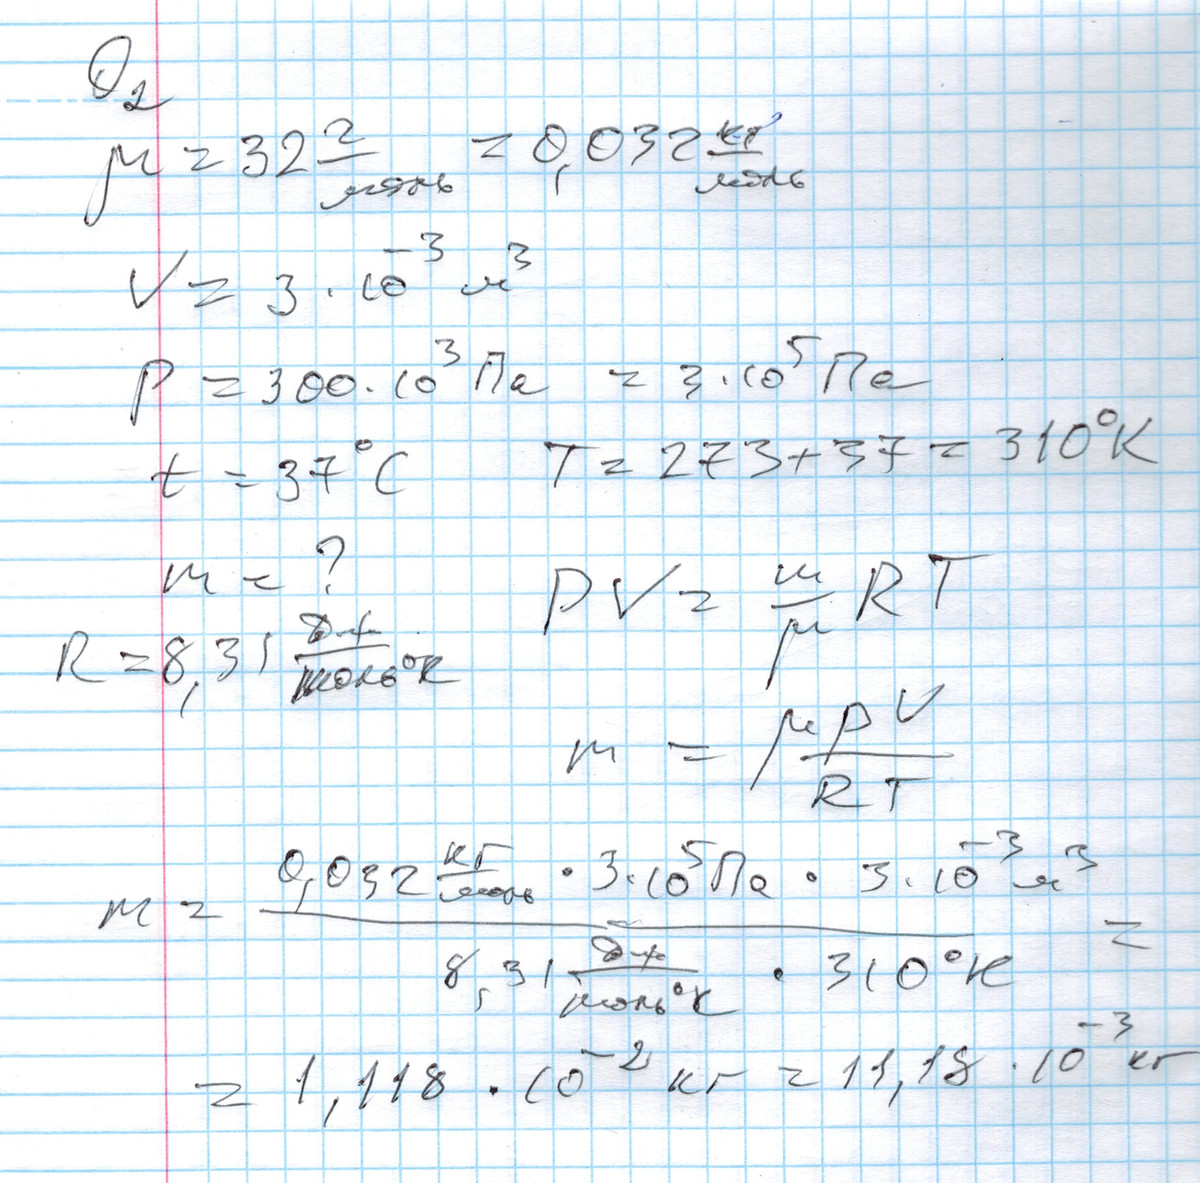 O₂
μ = 32 г/моль = 0,032 кг/моль
V = 3 · 10⁻³ м³
P = 300 · 10³ Па = 3 · 10⁵ Па
t = 37°C T = 273 + 37 = 310°K
m = ? PV = m/μ RT
R = 8,31 Дж/моль°K
m = μPV/RT
m = (0,032 кг/моль · 3 · 10⁵ Па · 3 · 10⁻³ м³)/(8,31 Дж/моль°K · 310°K) =
= 1,118 · 10⁻² кг = 11,18 · 10⁻³ кг